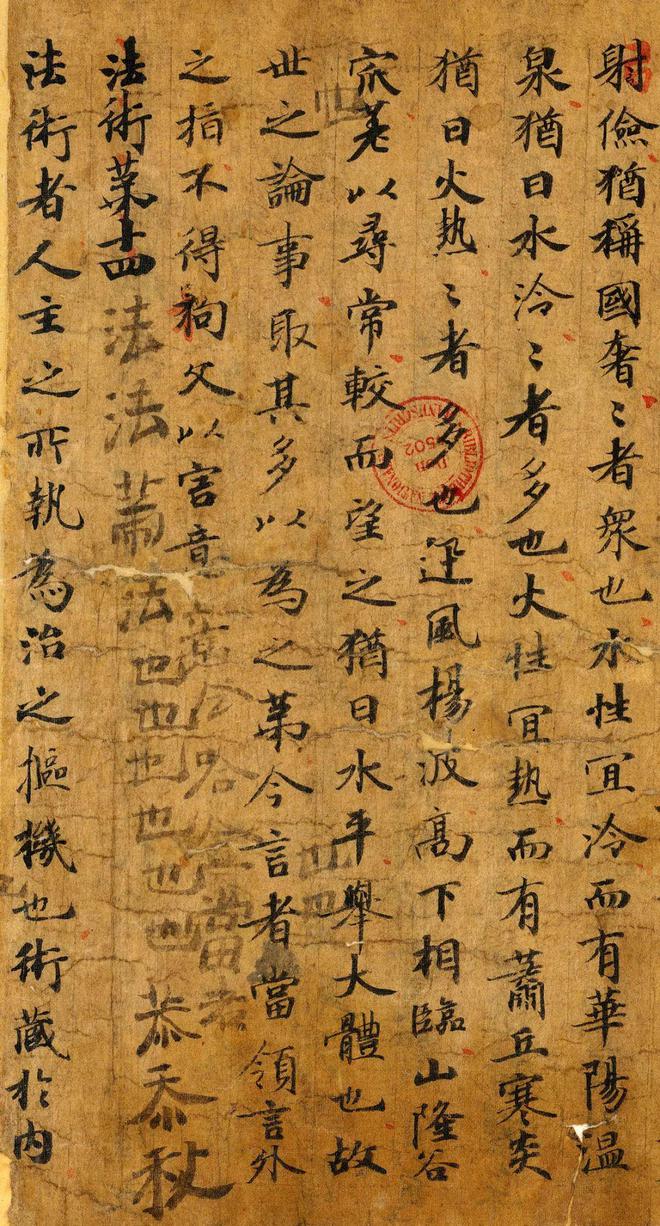 射儉猶稱國奢〻者衆也水性冝泠而有華陽温
泉猶曰水泠〻者多也火性冝熱而有蕭丘寒炎
猶曰火熱〻者多也迅風楊波高下相臨山隆谷
窊差以尋常較而望之猶曰水平舉大體也故
世之論事取其多以為之苐今言者當領言外
之指不得拘文以害意
法術苐十四 法法法也也也也也也恭忝秋
法術者人主之所執為治之樞機也術藏於内